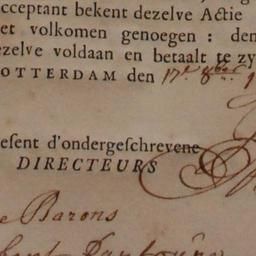 cceptant bekent dezelve Actie
et volkomen genoegen : den
ezelve voldaan en betaalt te zy
OTTERDAM den 17.e 8ber
esent d'ondergeschrevene
DIRECTEURS
e Barons